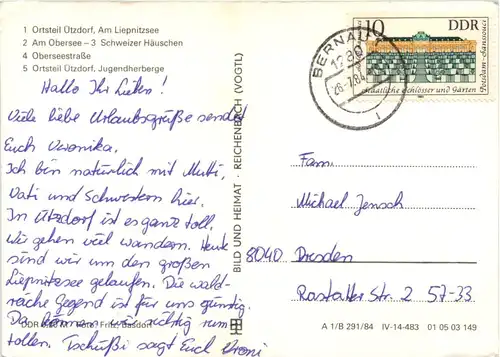 1 Ortsteil Ützdorf, Am Liepnitzsee
2 Am Obersee – 3 Schweizer Häuschen
4 Oberseestraße
5 Ortsteil Ützdorf, Jugendherberge
Hallo Ihr Lieben!
Viele liebe Urlaubsgrüße sendet
Euch Veronika.
Ich bin natürlich mit Mutti,
Vati und Schwestern hier.
In Ützdorf ist es ganz toll.
Wir gehen viel wandern. Heute
sind wir um den großen
Liepnitzsee gelaufen. Die wald-
reiche Gegend ist für uns günstig.
Da können wir richtig rum
tollen. Tschüßi sagt Euch Vroni
BILD UND HEIMAT · REICHENBACH (VOGTL)
10 DDR
Potsdam-Sanssouci
Staatliche Schlösser und Gärten
BERNAU
1280
26.7.84
Fam.
Michael Jensch
8040 Dresden
Rastatter Str. 2 57-33
DDR
Foto: Fritz, Basdorf
A 1/B 291/84 IV-14-483 01 05 03 149